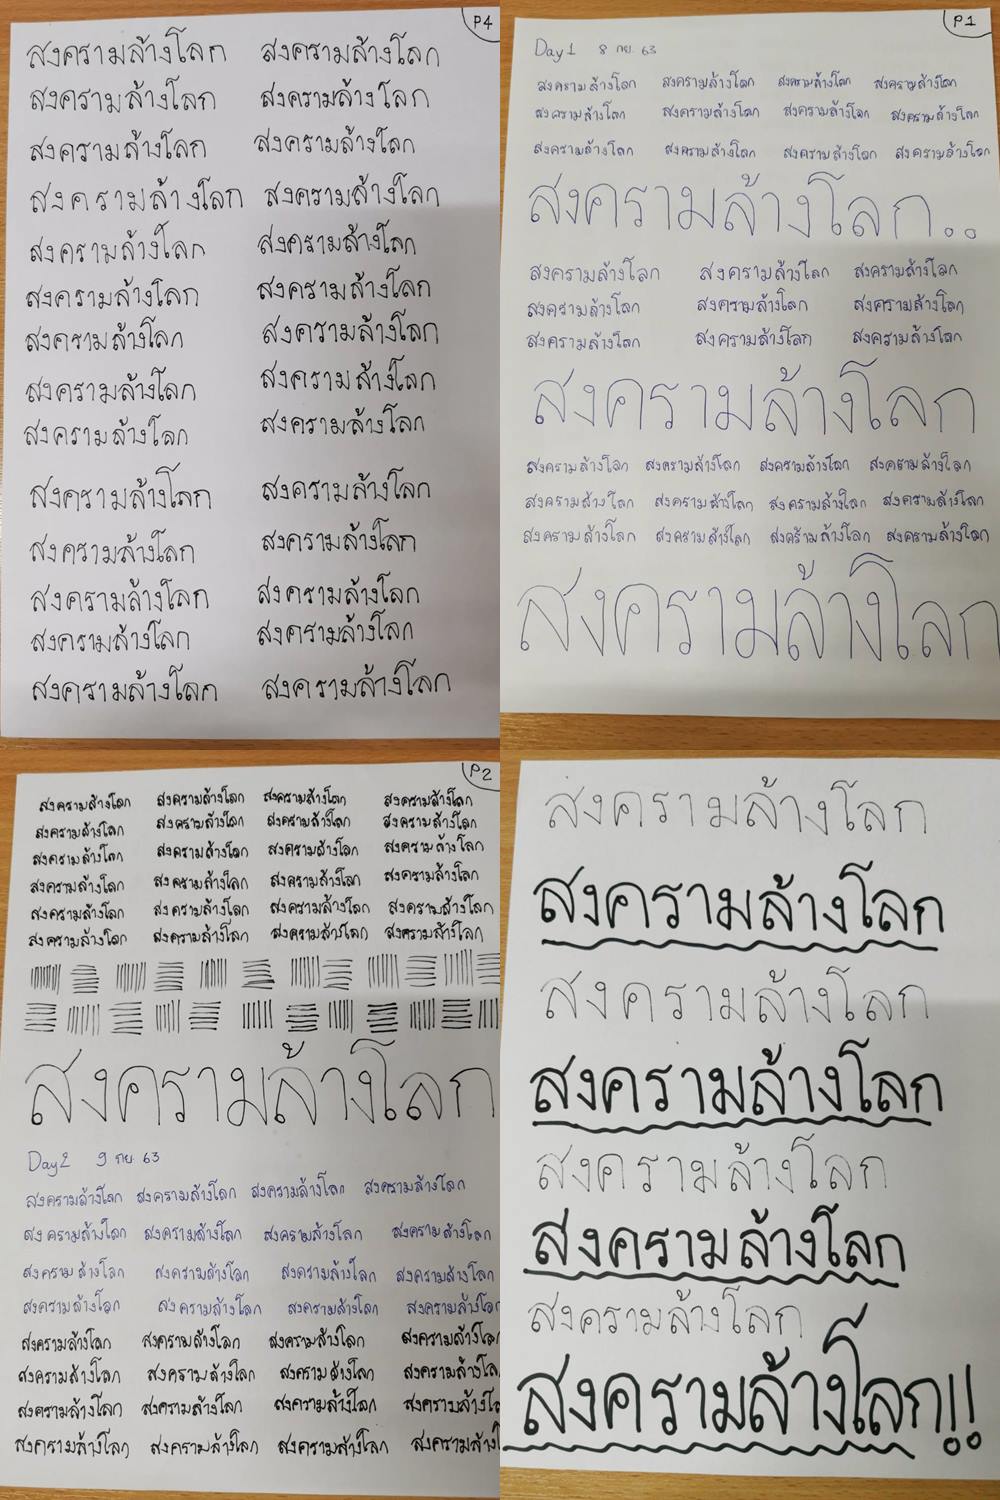 P4
สงครามล้างโลก สงครามล้างโลก
สงครามล้างโลก สงครามล้างโลก
สงครามล้างโลก สงครามล้างโลก
สงครามล้างโลก สงครามล้างโลก
สงครามล้างโลก สงครามล้างโลก
สงครามล้างโลก สงครามล้างโลก
สงครามล้างโลก สงครามล้างโลก
สงครามล้างโลก สงครามล้างโลก
สงครามล้างโลก สงครามล้างโลก
สงครามล้างโลก สงครามล้างโลก
สงครามล้างโลก สงครามล้างโลก
สงครามล้างโลก สงครามล้างโลก
สงครามล้างโลก สงครามล้างโลก
สงครามล้างโลก สงครามล้างโลก
P1
Day 1 8 กย. 63
สงครามล้างโลก สงครามล้างโลก สงครามล้างโลก สงครามล้างโลก
สงครามล้างโลก สงครามล้างโลก สงครามล้างโลก สงครามล้างโลก
สงครามล้างโลก สงครามล้างโลก สงครามล้างโลก สงครามล้างโลก
สงครามล้างโลก..
สงครามล้างโลก สงครามล้างโลก สงครามล้างโลก
สงครามล้างโลก สงครามล้างโลก สงครามล้างโลก
สงครามล้างโลก สงครามล้างโลก สงครามล้างโลก
สงครามล้างโลก
สงครามล้างโลก สงครามล้างโลก สงครามล้างโลก สงครามล้างโลก
สงครามล้างโลก สงครามล้างโลก สงครามล้างโลก สงครามล้างโลก
สงครามล้างโลก สงครามล้างโลก สงครามล้างโลก สงครามล้างโลก
สงครามล้างโลก
P2
สงครามล้างโลก สงครามล้างโลก สงครามล้างโลก สงครามล้างโลก
สงครามล้างโลก สงครามล้างโลก สงครามล้างโลก สงครามล้างโลก
สงครามล้างโลก สงครามล้างโลก สงครามล้างโลก สงครามล้างโลก
สงครามล้างโลก สงครามล้างโลก สงครามล้างโลก สงครามล้างโลก
สงครามล้างโลก สงครามล้างโลก สงครามล้างโลก สงครามล้างโลก
สงครามล้างโลก สงครามล้างโลก สงครามล้างโลก สงครามล้างโลก
สงครามล้างโลก
Day2 9 กย. 63
สงครามล้างโลก สงครามล้างโลก สงครามล้างโลก สงครามล้างโลก
สงครามล้างโลก สงครามล้างโลก สงครามล้างโลก สงครามล้างโลก
สงครามล้างโลก สงครามล้างโลก สงครามล้างโลก สงครามล้างโลก
สงครามล้างโลก สงครามล้างโลก สงครามล้างโลก สงครามล้างโลก
สงครามล้างโลก สงครามล้างโลก สงครามล้างโลก สงครามล้างโล
สงครามล้างโลก สงครามล้างโลก สงครามล้างโลก สงครามล้างโล
สงครามล้างโลก สงครามล้างโลก สงครามล้างโลก สงครามล้างโล
สงครามล้างโลก สงครามล้างโลก สงครามล้างโลก สงครามล้างโ
สงครามล้างโลก
สงครามล้างโลก
สงครามล้างโลก
สงครามล้างโลก
สงครามล้างโลก
สงครามล้างโลก
สงครามล้างโลก
สงครามล้างโลก!!